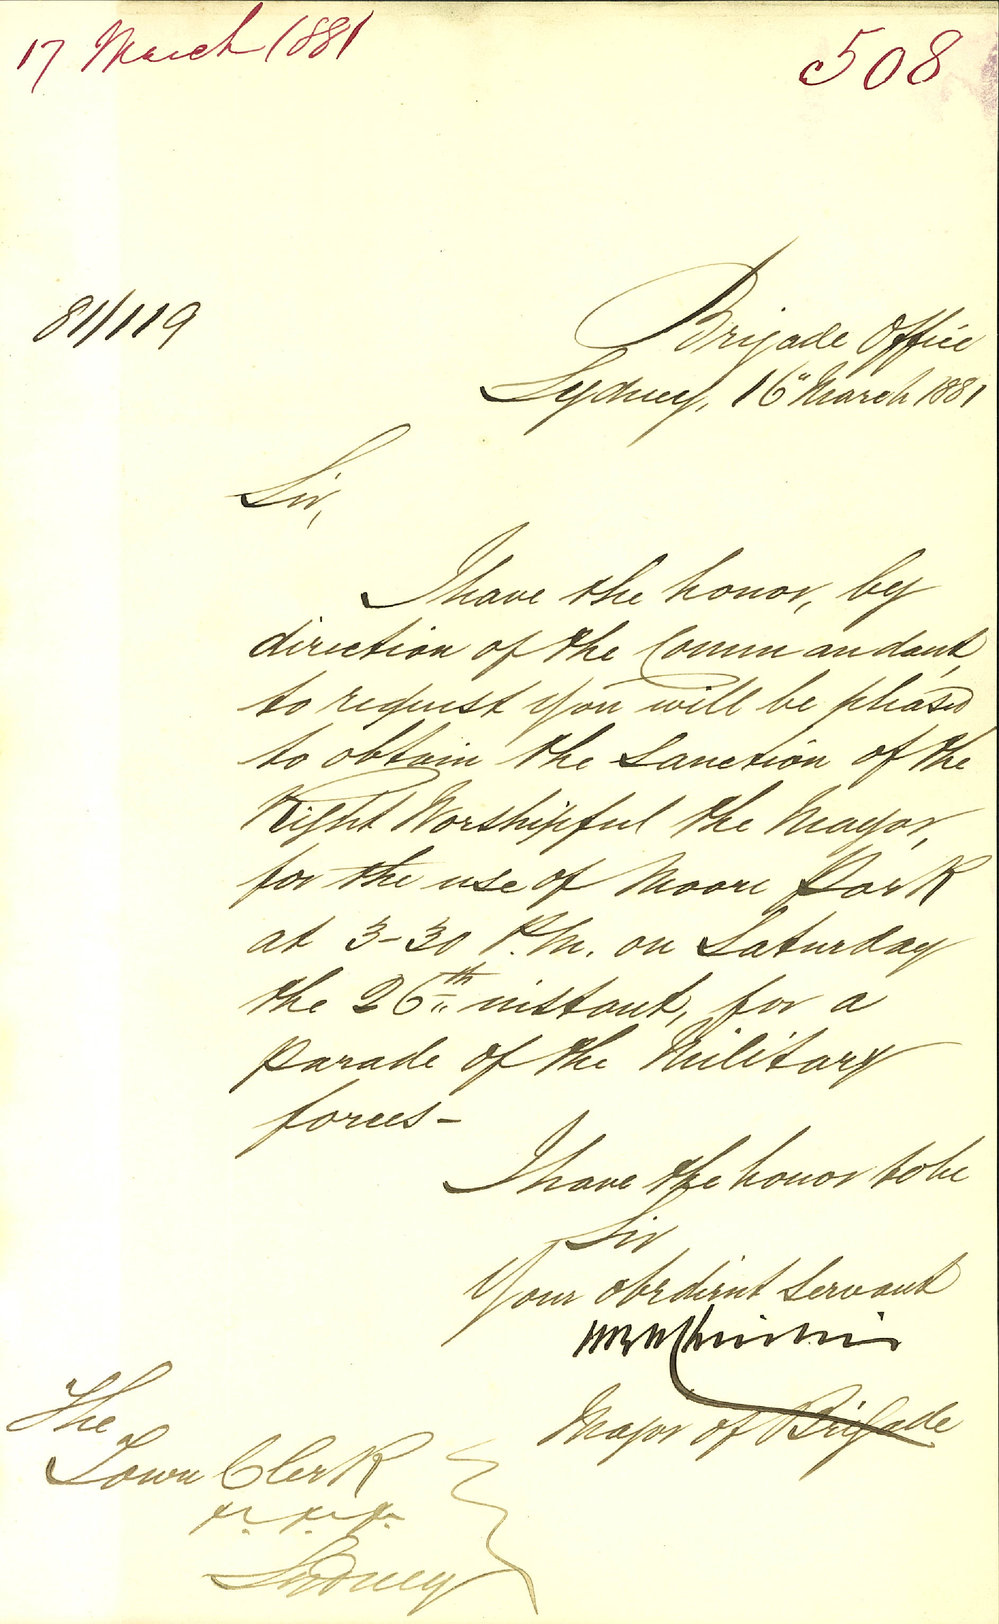 17 March 1881
508
81/119
Brigade Office
Sydney, 16" March 1881
Sir,
I have the honor, by
direction of the Commandant,
to request you will be pleased
to obtain the Sanction of the
Right Worshipful the Mayor,
for the use of Moore Park
at 3-30 P.M. on Saturday
the 26th instant, for a
parade of the Military
forces-
I have the honor to be
Sir
Your obedient Servant
Major of Brigade
The
Town Clerk
Sydney